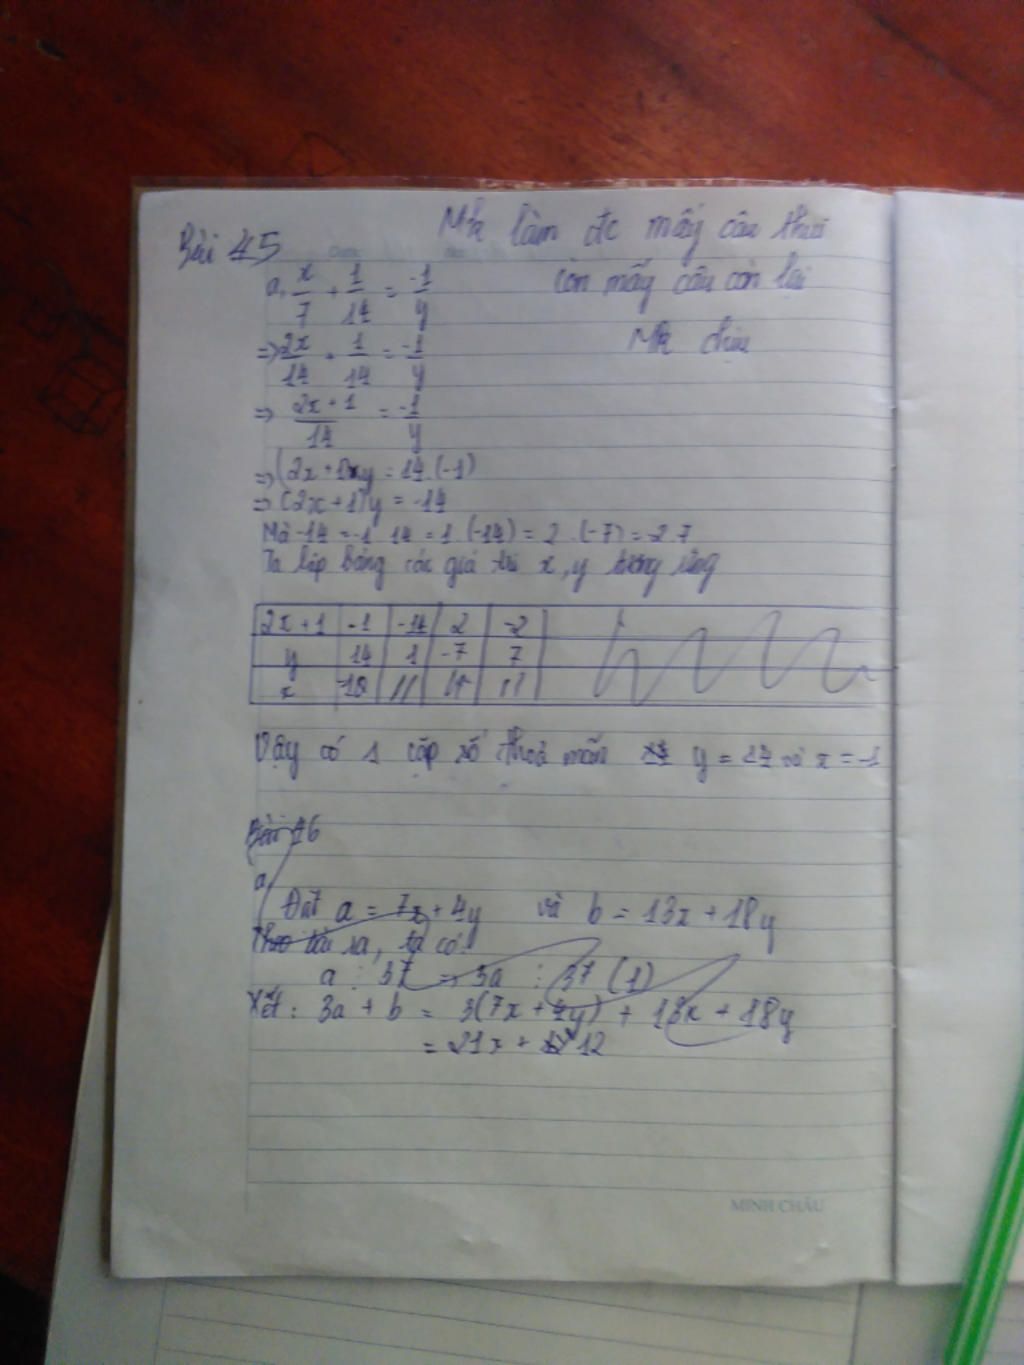 Bài 45
Mk làm đc mấy câu thui
còn mấy câu còn lại
Mk chịu
a, x/7 + 1/14 = -1/y
=> 2x/14 + 1/14 = -1/y
=> 2x+1/14 = -1/y
=> (2x+1)xy = 14.(-1)
=> (2x+1)y = -14
Mà -14 = -1.14 = 1.(-14) = 2.(-7) = -2.7
Ta lập bảng các giá trị x, y tương ứng
2x+1 -1 -14 2 -2
y 14 1 -7 7
x // //
Vậy có 1 cặp số thoả mãn y = 14 và x = -1
Bài 46
a,
Đặt a = 7x + 4y và b = 13x + 18y
Theo bài ra, ta có:
a ⋮ 37 => 3a ⋮ 37 (1)
Xét: 3a + b = 3(7x + 4y) + 13x + 18y
= 21x + 12
MINH CHÂU